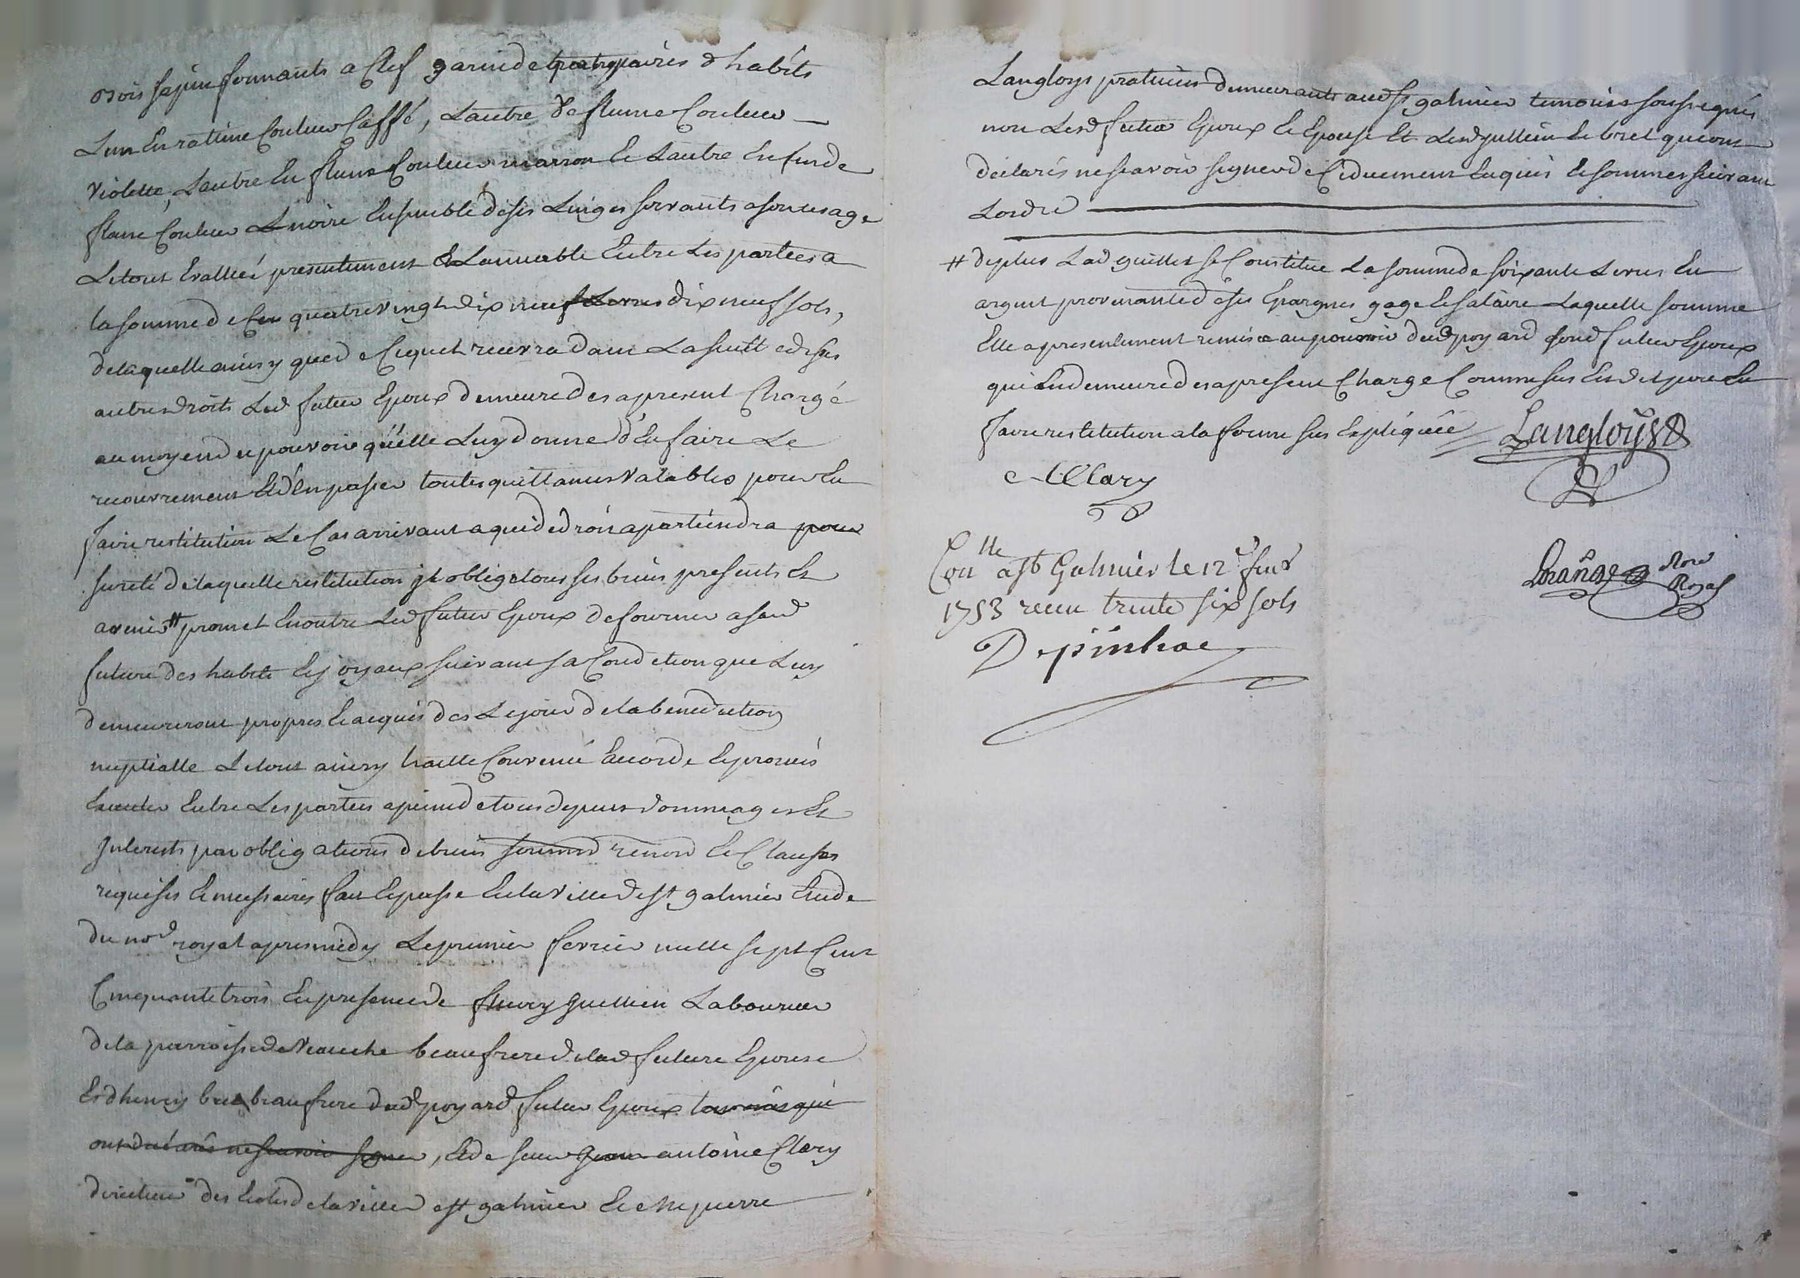 Bois sapin fermants a Clef garnid e quatre paires d habits
L un En ratinne Couleur Caffé, Lautre de flame Couleur
violette, Lautre En flame Couleur marron Et Lautre En fin de
flame Couleur noire Ensemble de ses Linges servants a son usage
Le tout Evallué presentement a Lamiable Entre Les parties a
la somme de Cen quatre vingt dix neuf Livres dix neuf sols,
de laquelle ainsy que de Ce quel recevra dans La suitte de ses
autres droits Led futur Epoux demeure des apresent Chargé
au moyen du pouvoir quelle Luy donne d'En faire Le
recouvrement Et d'En passer touttes quittances valables pour En
faire restitution Le Cas arrivant a qui de droit apartiendra pour
sureté de laquelle restitution il oblige tous ses biens presents Et
avenir # promet Enoutre Led futur Epoux de fournir a sad
future des habits Et joyaux suivant sa Condition que Luy
demeureront propres Et acquis des Le jour de la benediction
nuptialle Le tout ainsy traitté Convenu accordé Et promis
Executer Entre Les parties a peine de tous depens dommages Et
Interests par obligations de biens soumis renon Et Clauses
requises Et necessaires fait Et passé En la ville de st galmier Etude
du no.re royal apres midy Le premier fevrier mille sept Cent
Cinquante trois En presence de fleury guillien Laboureur
de la parroisse de Veauche beaufrere de lad future Epouse
Et d henry bret beaufrere dud poyard futur Epoux temoins qui
ont declarés ne scavoir signer, Et de sieur antoine Clary
directeur des Ecoles de la ville de st galmier Et de Me pierre
Langloys praticien demeurants aud st galmier temoins soussignés
non Lesd futur Epoux Et Epouse Et Lesd guillien Et bret que ont
declarés ne scavoir signer de Ce duement Enquis Et sommes suivant
Lordre
# de plus Lad guillet se Constitue La somme de soixante Livres En
argent provenante de ses Epargnes gage Et salaire Laquelle somme
Elle a presentement remise au pouvoir dud poyard sond futur Epoux
qui En demeure des apresent Charge Comme sus Est dit pour En
faire restitution a la forme sus Expliquée Langloys
Clary
Con.lle a st Galmier le 12e fevr
1753 recu trente six sols
Depinhac
no.re
Royal